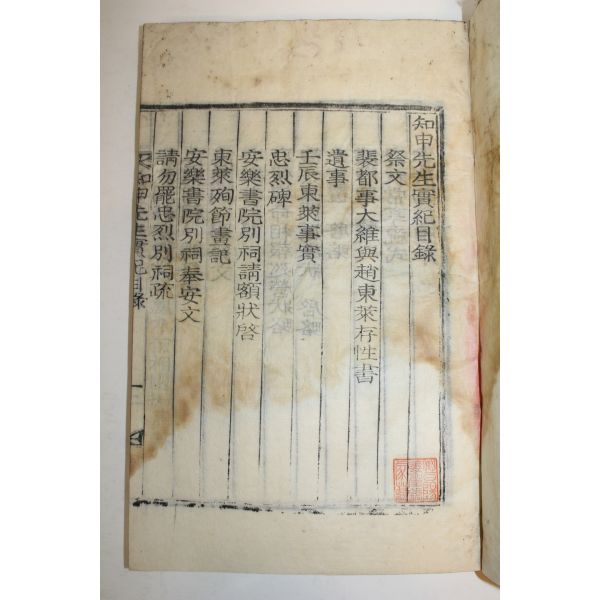 知申先生實紀目錄
祭文
裴都事大維與趙東萊存性書
遺事
壬辰東萊事實
忠烈碑
安樂書院別祠請額狀啓
東萊殉節畫記
安樂書院別祠奉安文
請勿罷忠烈別祠疏
知申先生實紀目錄